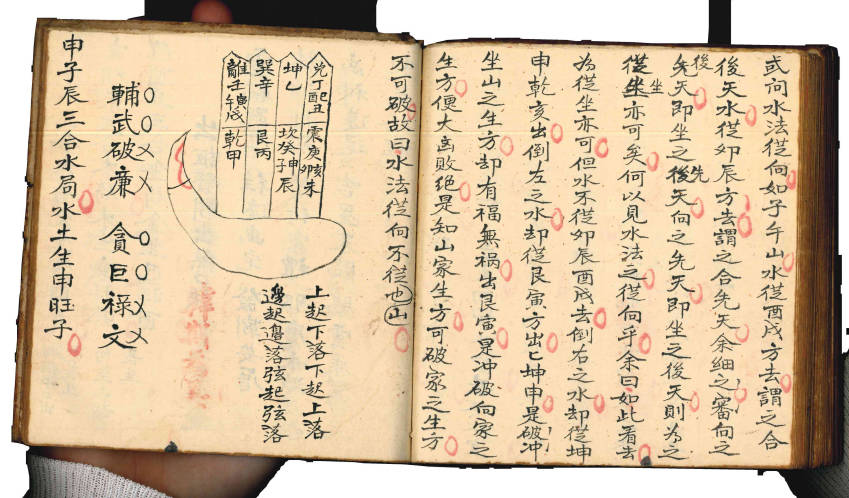 或问水法從向如子午山水從酉戌方去謂之合
後天水從卯辰方去謂之合先天余細之審向之
後
先天即坐之後天向之先天即坐之後天則為之
先
從坐亦可矣何以見水法之從向乎余曰如此看去
坐
為從坐亦可但水不從卯辰酉戌去倒右之水却從坤
申乾亥出倒左之水却從艮寅方出乙坤申是破冲
坐山之生方却有福無祸出艮寅是冲破向家之
生方便大凶败绝是知山家生方可破家之生方
不可破故曰水法從向不從也山
兌丁配丑
震庚卿亥未
坤乙
坎癸子申辰
巽辛
艮丙
離壬戌
乾甲
上起下落下起上落
邊起邊落弦起弦落
輔武破廉 貪巨禄文
申子辰三合水局水土生申旺子